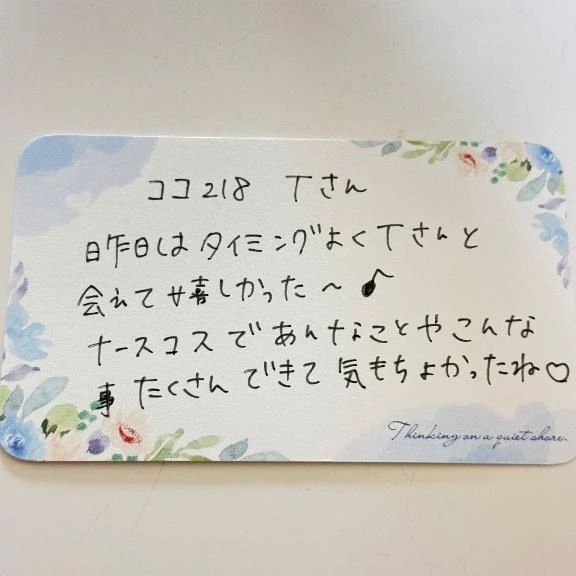 ココ218 Tさん
昨日はタイミングよくTさんと
会えて嬉しかった〜♪
ナースコスであんなことやこんな
事たくさんできて気もちよかったね♡
Thinking on a quiet shore.